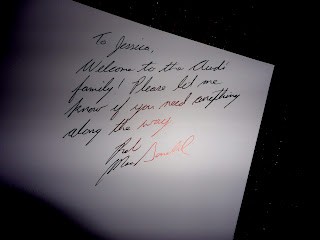 To Jessica,
Welcome to the Audi
family! Please let me
know if you need anything
along the way.